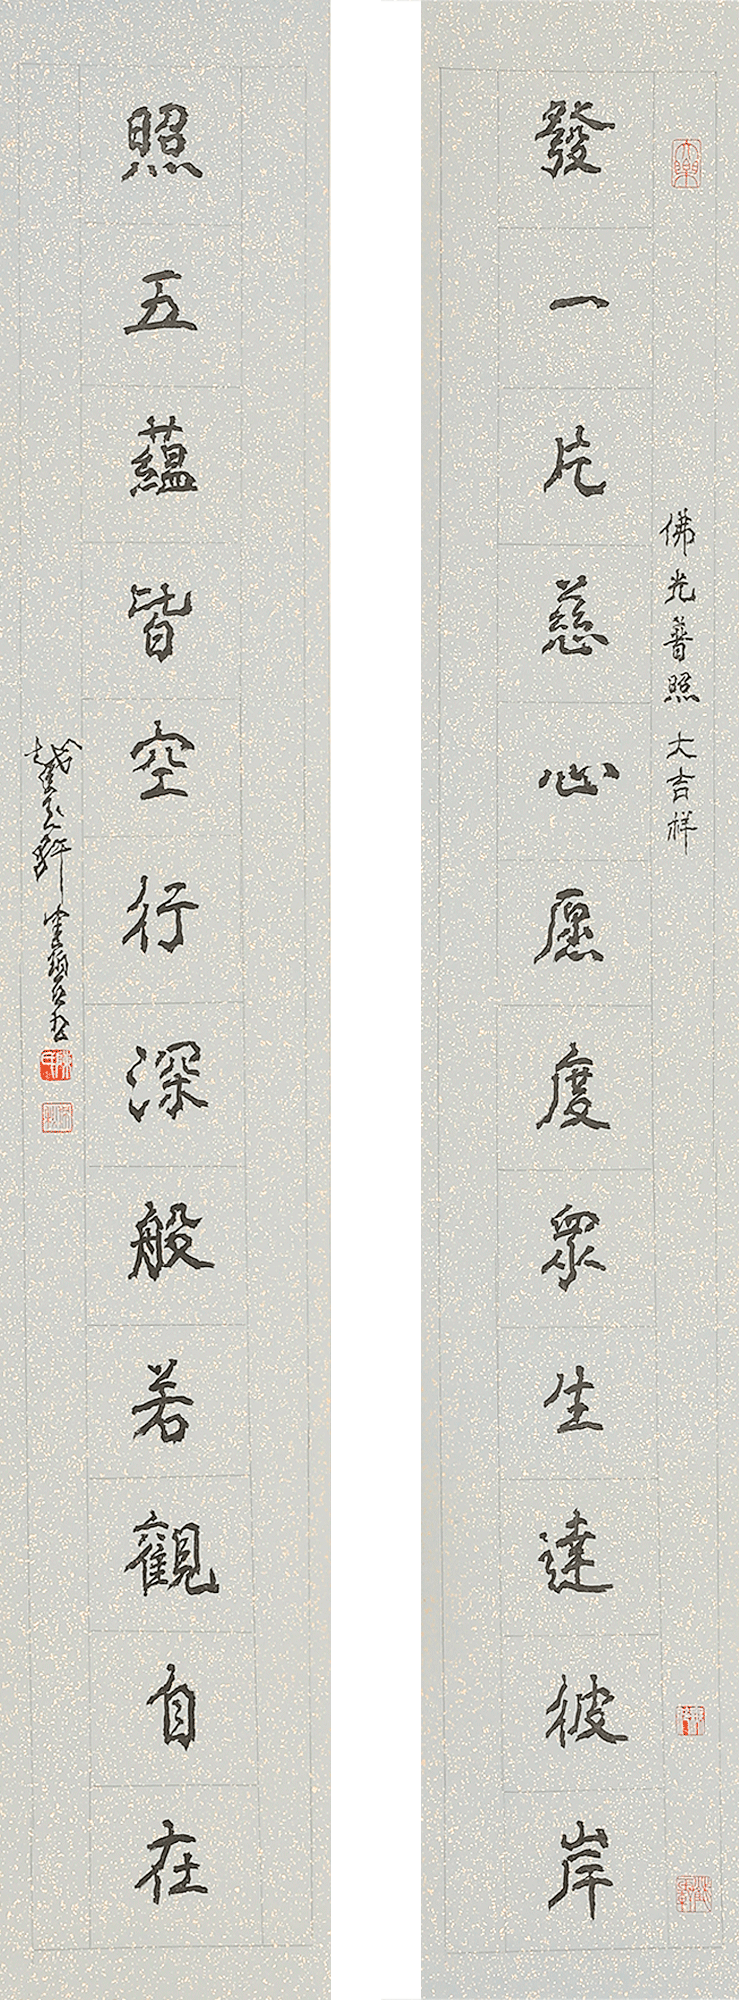 佛光普照 大吉祥
發一片慈心愿度眾生達彼岸
照五蘊皆空行深般若觀自在